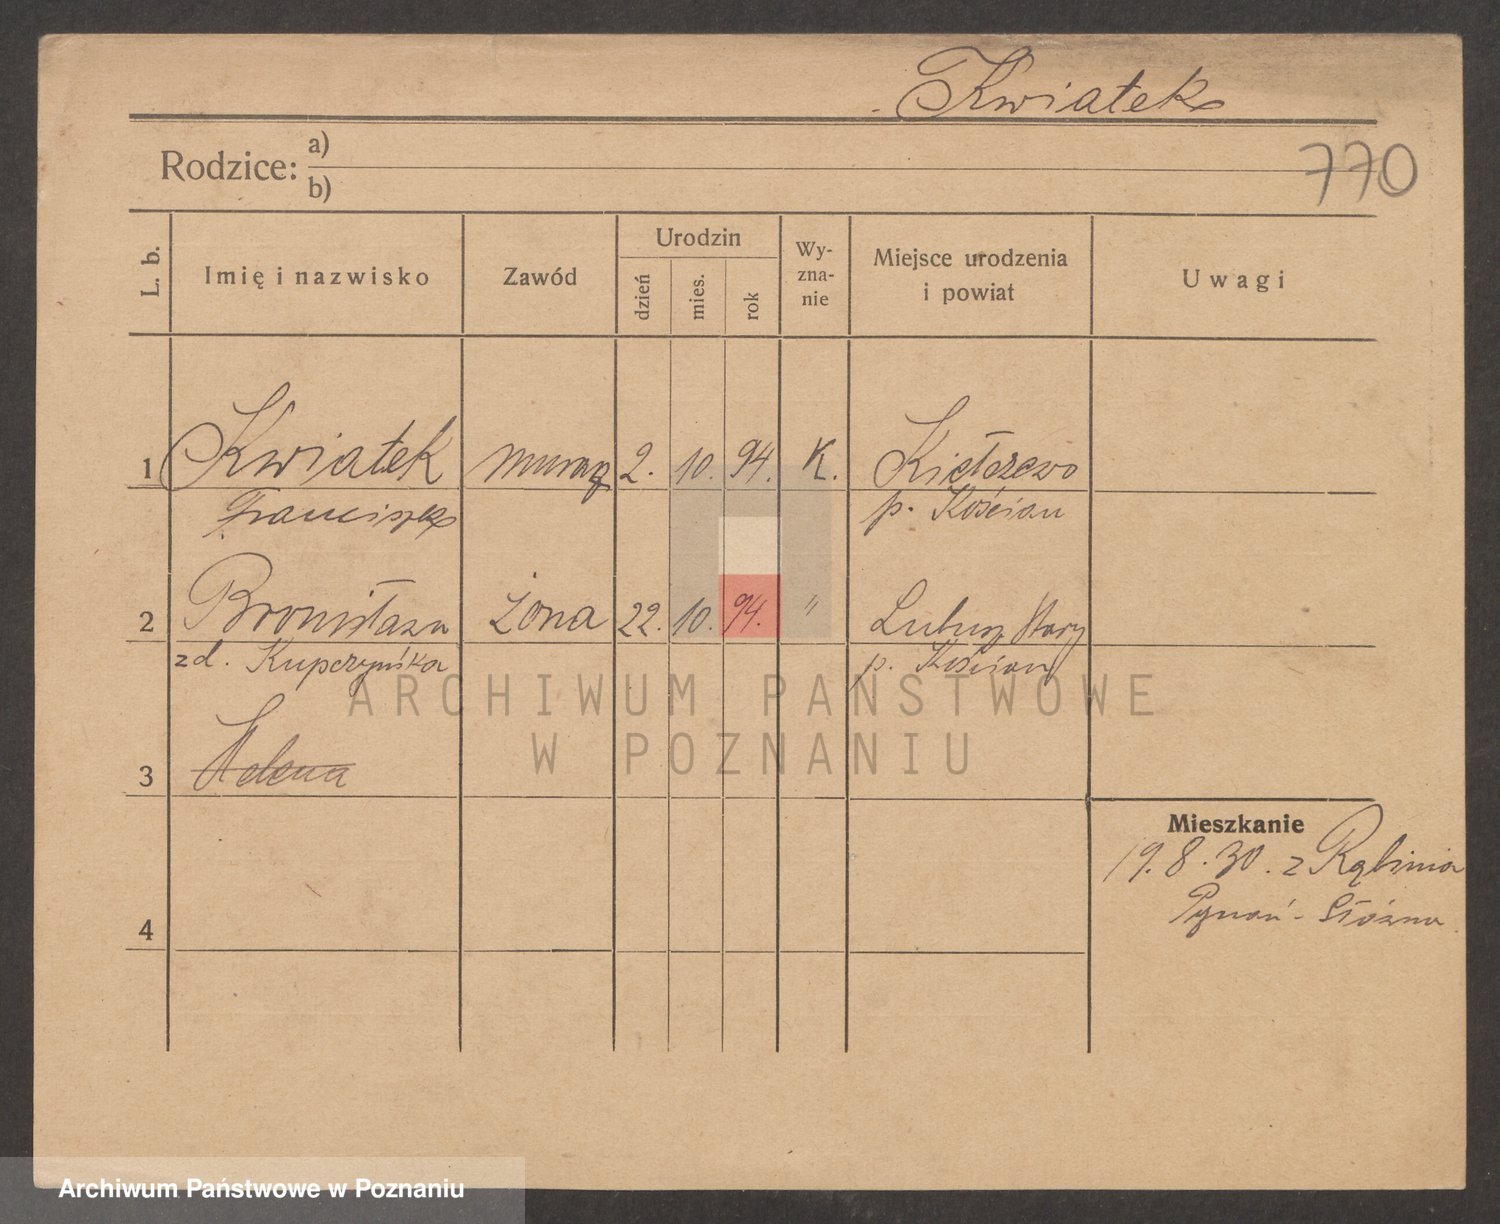 Kwiatek
770
Rodzice: a)
b)
L. b.
Imię i nazwisko
Zawód
Urodzin
dzień
mies.
rok
Wy-
zna-
nie
Miejsce urodzenia
i powiat
Uwagi
1 Kwiatek murarz 2. 10. 94. K. Kiełczewo
Franciszek p. Kościan
2 Bronisława żona 22. 10. 94. " Lubusz Stary
zd. Kupczyńska p. Kościan
3 Helena
Mieszkanie
19. 8. 30. z Rąbinia
4
Poznań - Stóżna
ARCHIWUM PAŃSTWOWE
W POZNANIU
Archiwum Państwowe w Poznaniu